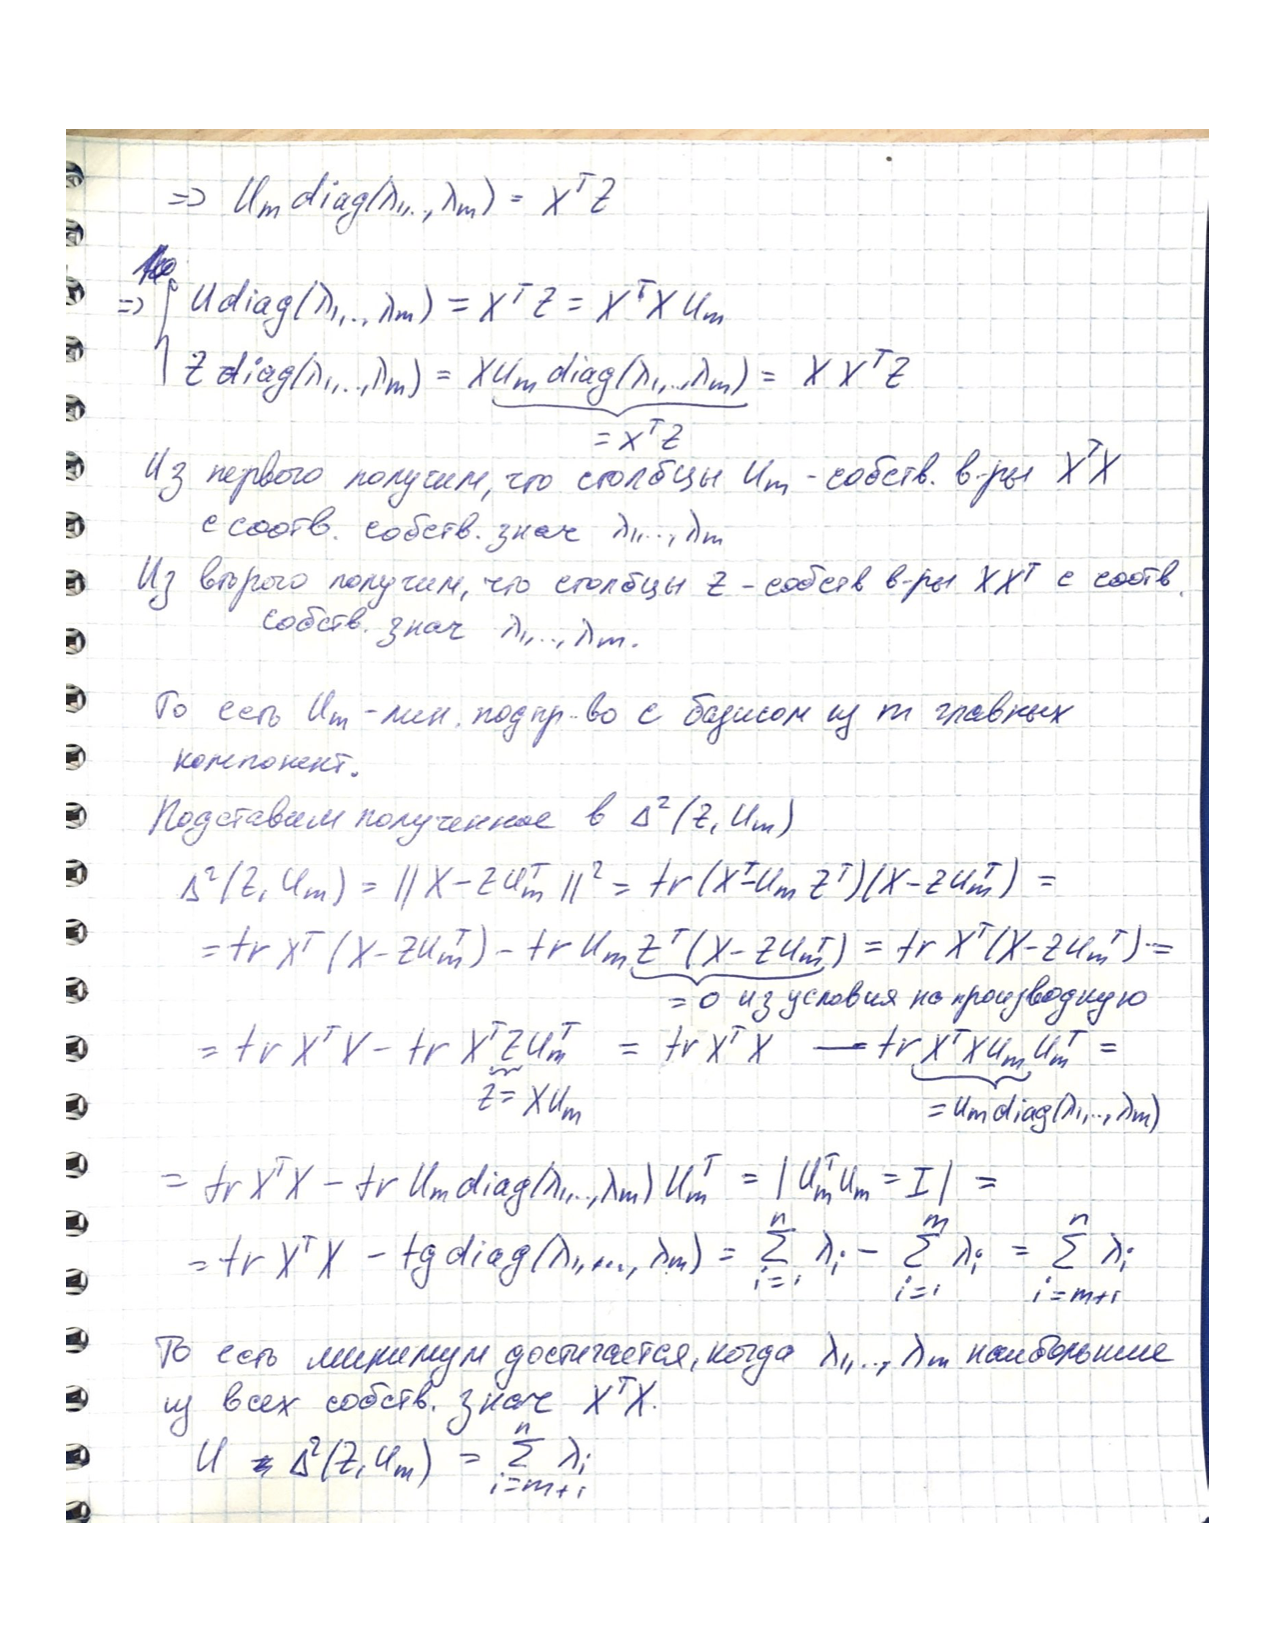 => Um diag(λ1,.., λm) = X^T Z
=> { U diag(λ1,.., λm) = X^T Z = X^T X Um
Z diag(λ1,.., λm) = X Um diag(λ1,.., λm) = X X^T Z
= X^T Z
Из первого получим, что столбцы Um - собств. в-ры X^T X
с соотв. собств. знач λ1,.., λm
Из второго получим, что столбцы Z - собств в-ры XX^T с соотв.
собств. знач λ1,.., λm.
То есть Um - лин. подпр-во с базисом из m главных
компонент.
Подставим полученное в Δ²(Z, Um)
Δ²(Z, Um) = ||X - ZUm^T||² = tr(X^T - Um Z^T)(X - ZUm^T) =
= tr X^T(X - ZUm^T) - tr Um Z^T(X - ZUm^T) = tr X^T(X - ZUm^T) =
= 0 из условия на производную
= tr X^T X - tr X^T Z Um^T = tr X^T X — tr X^T X Um Um^T =
Z = XUm
= Um diag(λ1,.., λm)
= tr X^T X - tr Um diag(λ1,.., λm) Um^T = |Um^T Um = I| =
= tr X^T X - tg diag(λ1,..., λm) = Σ_{i=1}^{n} λi - Σ_{i=1}^{m} λi = Σ_{i=m+1}^{n} λi
То есть минимум достигается, когда λ1,.., λm наибольшие
из всех собств. знач X^T X.
И Δ²(Z, Um) = Σ_{i=m+1}^{n} λi